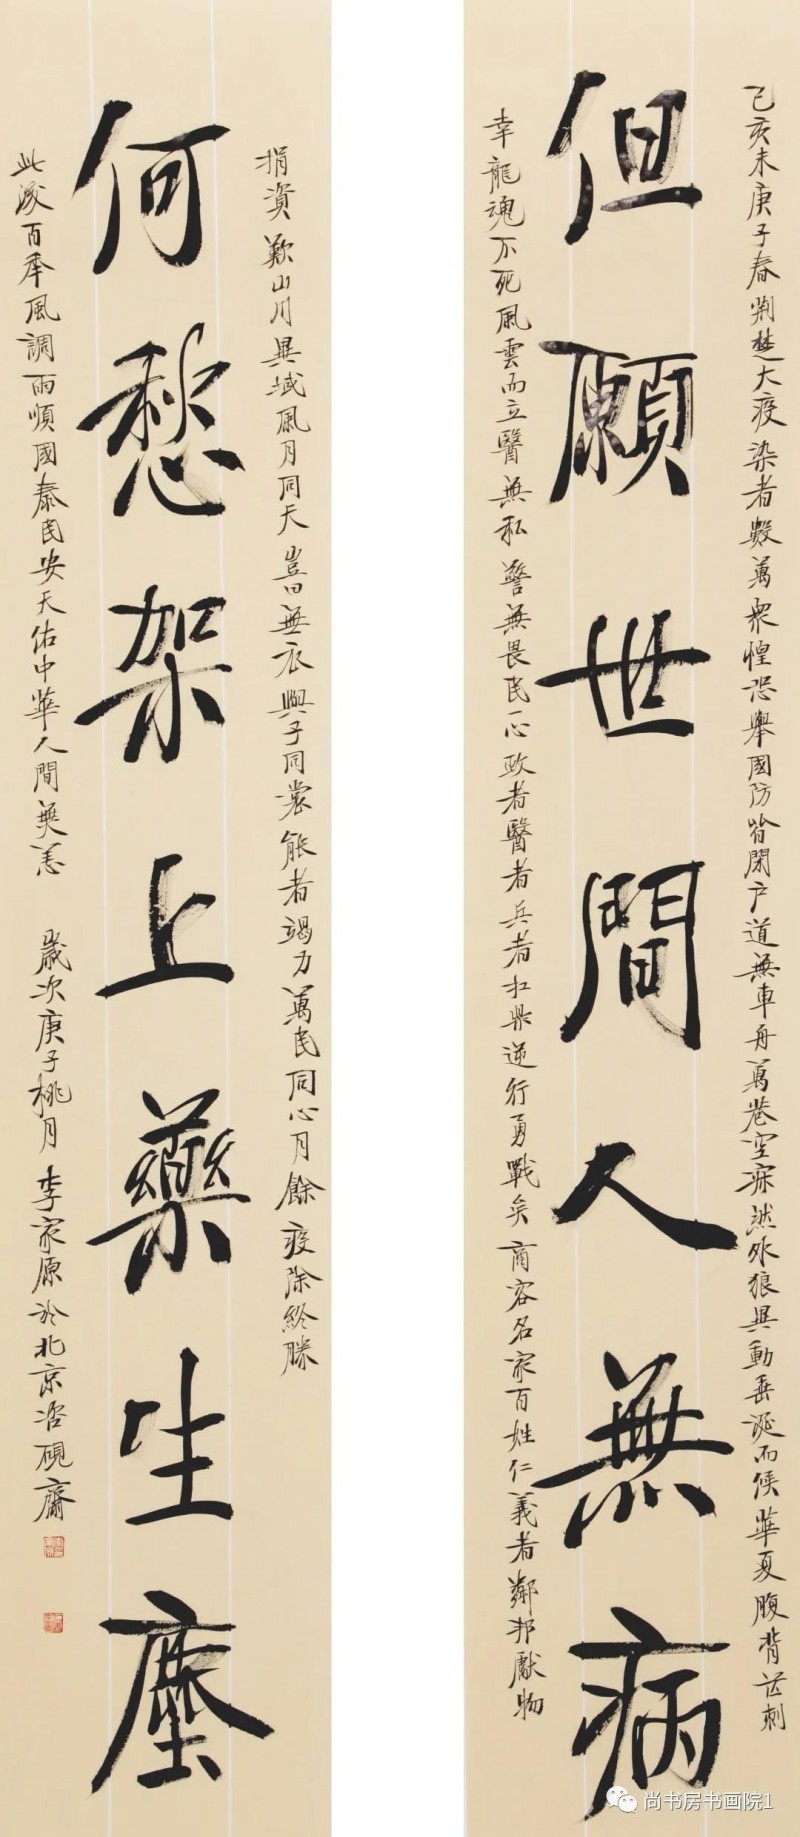 但願世間人無病
何愁架上藥生塵
己亥末庚子春荆楚大疫染者數萬衆惶恐舉國防皆閉户道無車舟萬巷空寂然外狼異動垂涎而候華夏腹背芒刺
幸龍魂不死風雲而立醫無私警無畏民一心政者醫者兵者扛鼎逆行勇戰矣商容名家百姓仁義者鄰邦獻物
捐資歎山川異域風月同天豈曰無衣與子同裳能者竭力萬民同心月餘疫除終勝
此後百年風調雨順國泰民安天佑中華人間無恙
歲次庚子桃月李家原於北京 硯齋
尚书房书画院1